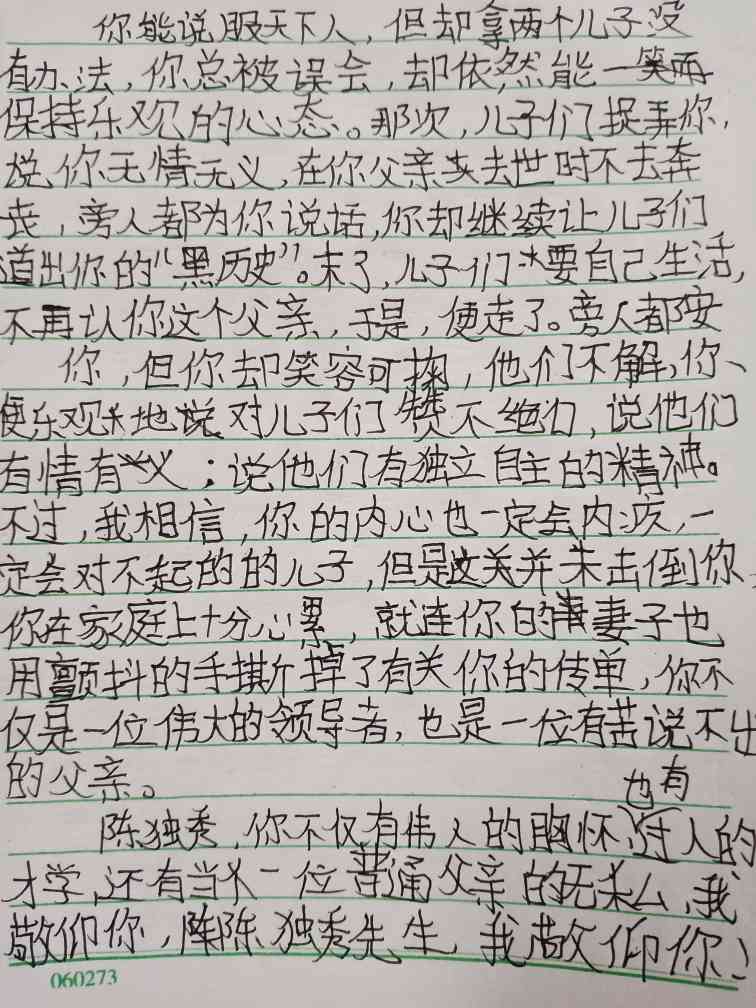 你能说服天下人，但却拿两个儿子没
有办法，你总被误会，却依然能一笑而
保持乐观的心态。那次，儿子们捉弄你，
说你无情无义，在你父亲去世时不去奔
丧，旁人都为你说话，你却继续让儿子们
道出你的“黑历史”。末了，儿子们要自己生活，
不再认你这个父亲，于是，便走了。旁人都安
你，但你却笑容可掬，他们不解，你、
便乐观地说对儿子们赞不绝口，说他们
有情有义；说他们有独立自主的精神。
不过，我相信，你的内心也一定会内疚，一
定会对不起的的儿子，但是这关并未击倒你，
你在家庭上十分心累，就连你的妻子也
用颤抖的手撕掉了有关你的传单，你不
仅是一位伟大的领导者，也是一位有苦说不出
的父亲。
也有
陈独秀，你不仅有伟人的胸怀，过人的
才学，还有当一位普通父亲的无，我
敬仰你，陈独秀先生，我敬仰你！
060273